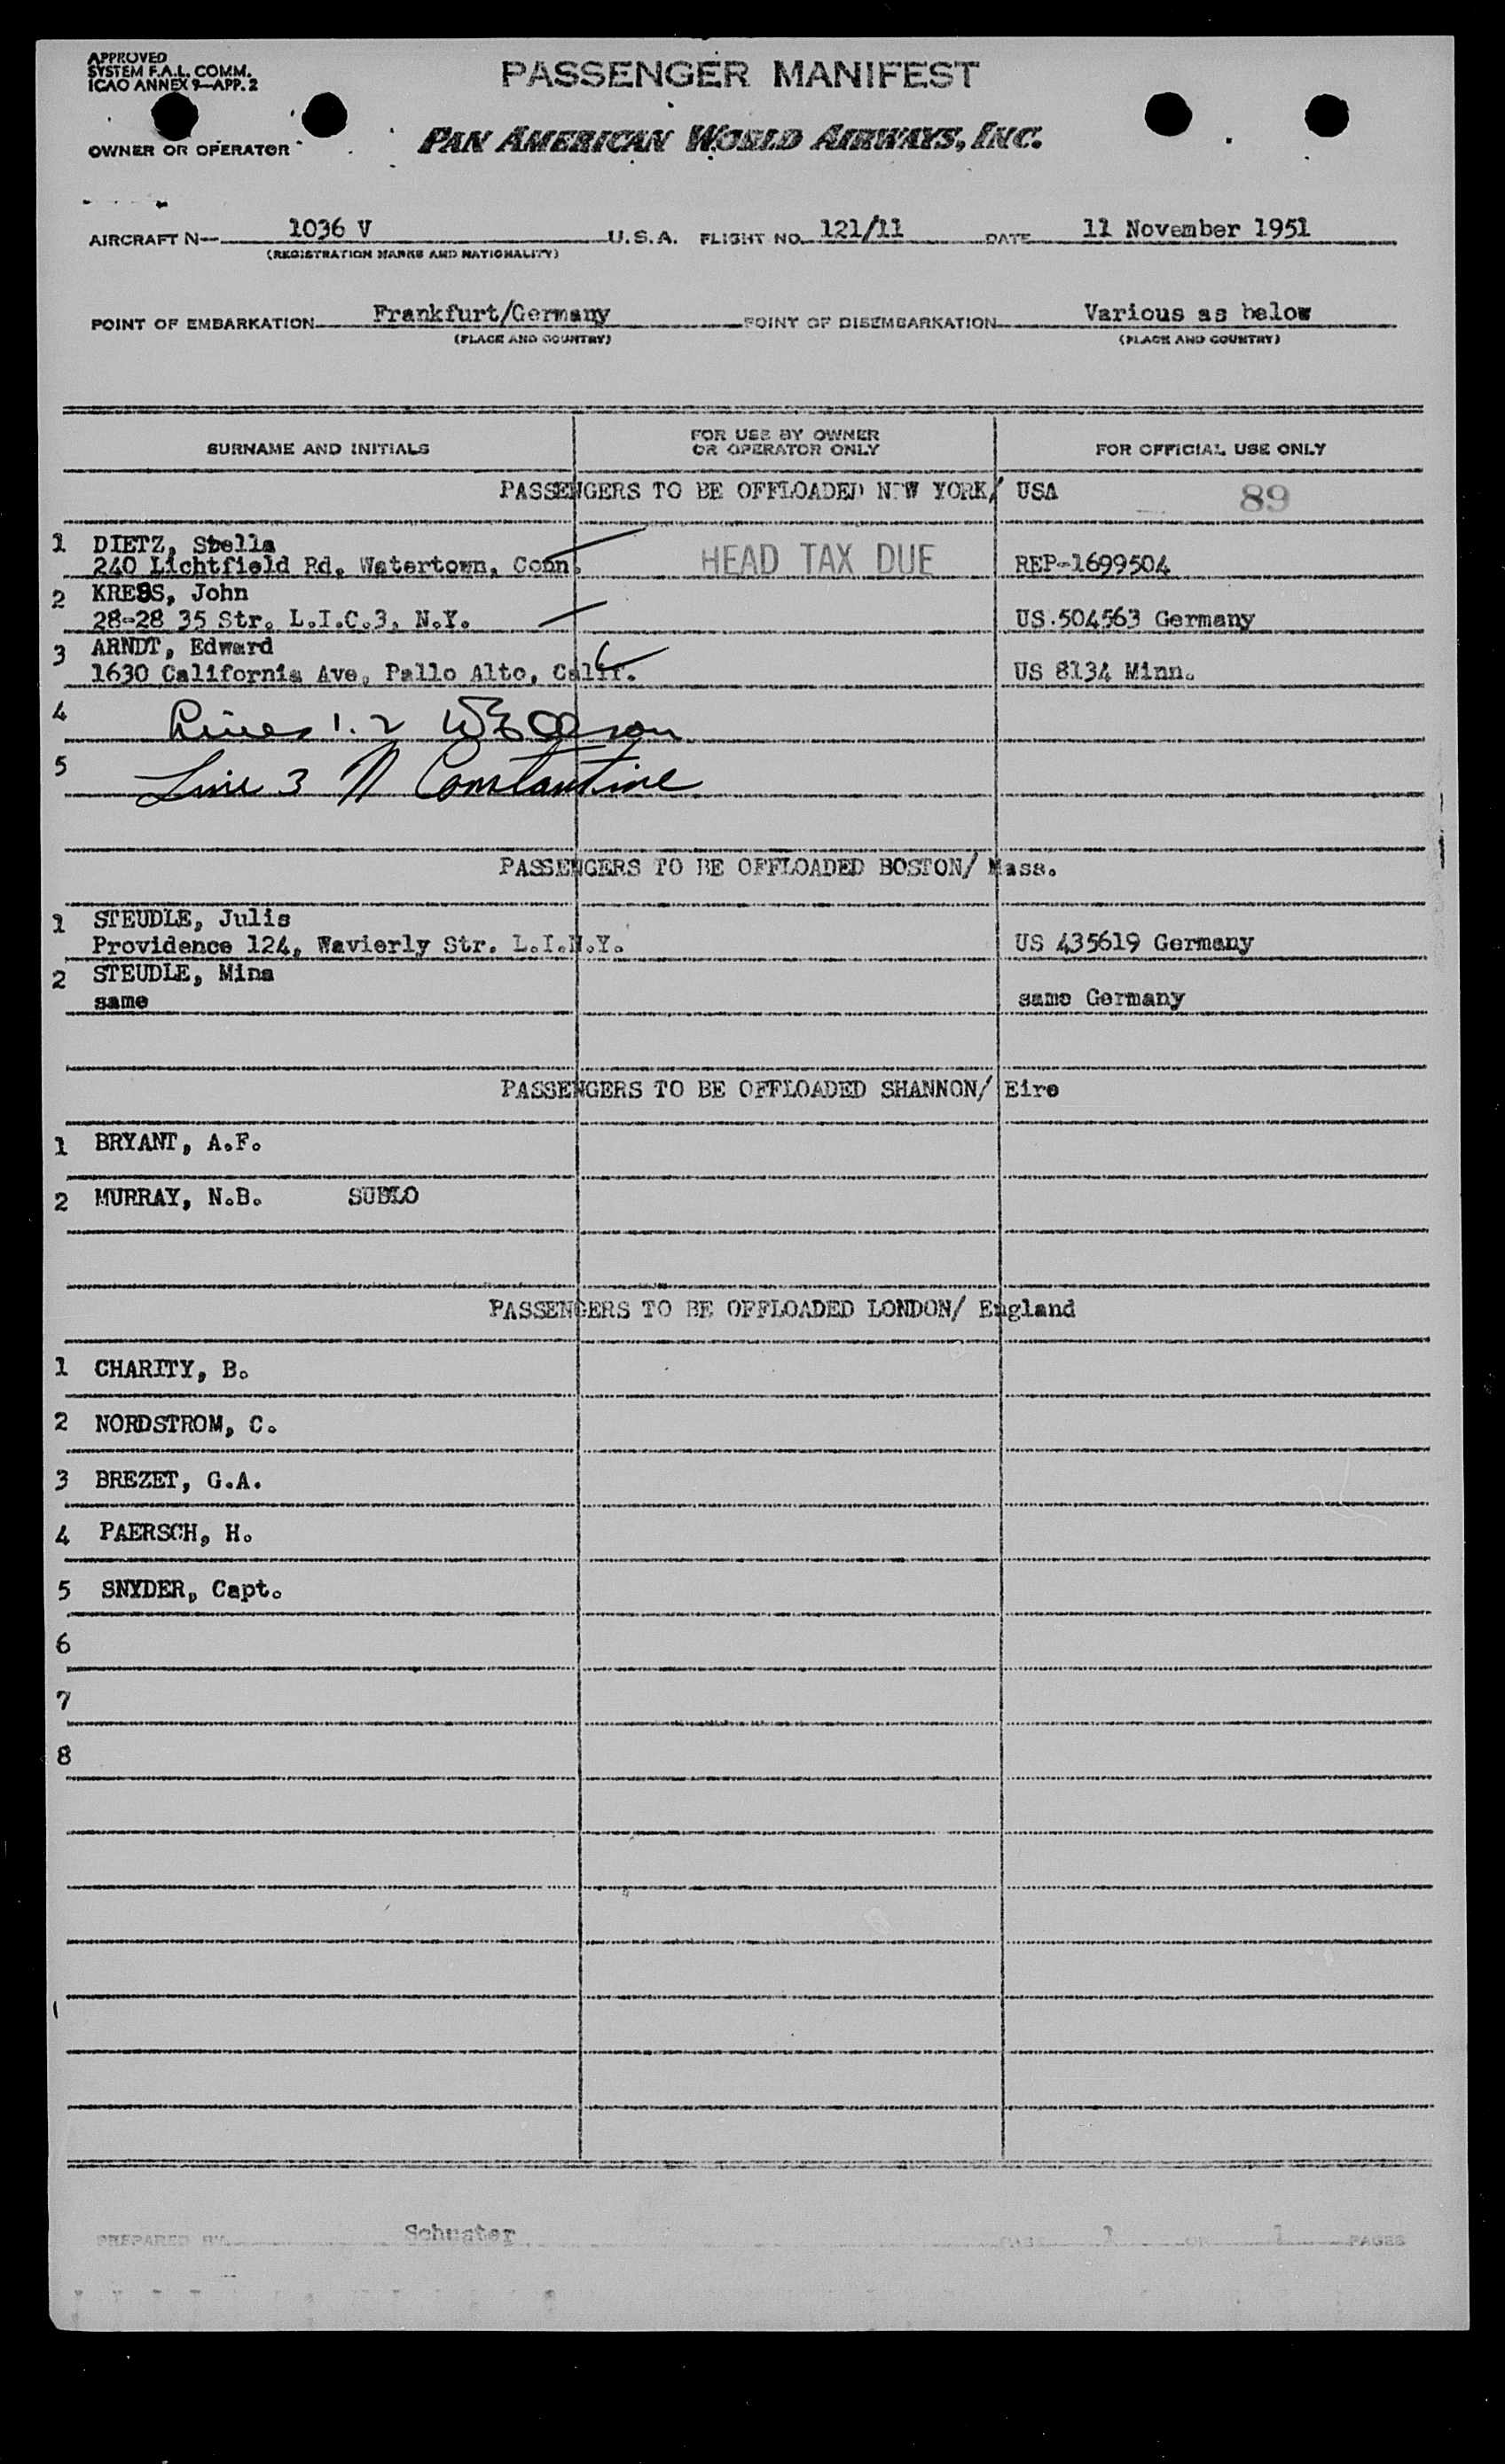 APPROVED
SYSTEM F.A.L. COMM.
ICAO ANNEX 9—APP. 2
PASSENGER MANIFEST
OWNER OR OPERATOR
PAN AMERICAN WORLD AIRWAYS, INC.
AIRCRAFT N— 1036 V U.S.A. FLIGHT NO. 121/11 DATE 11 November 1951
(REGISTRATION MARKS AND NATIONALITY)
POINT OF EMBARKATION Frankfurt/Germany POINT OF DISEMBARKATION Various as below
(PLACE AND COUNTRY) (PLACE AND COUNTRY)
SURNAME AND INITIALS FOR USE BY OWNER OR OPERATOR ONLY FOR OFFICIAL USE ONLY
PASSENGERS TO BE OFFLOADED NEW YORK/ USA 89
1 DIETZ, Stella
240 Lichtfield Rd, Watertown, Conn. HEAD TAX DUE REP-1699504
2 KRESS, John
28-28 35 Str. L.I.C.3, N.Y. US 504563 Germany
3 ARNDT, Edward
1630 California Ave, Pallo Alto, Calif. US 8134 Minn.
4 Lines 1. 2
5 Line 3 N Constantine
PASSENGERS TO BE OFFLOADED BOSTON/ Mass.
1 STEUDLE, Julis
Providence 124, Wavierly Str. L.I.N.Y. US 435619 Germany
2 STEUDLE, Mina
same same Germany
PASSENGERS TO BE OFFLOADED SHANNON/ Eire
1 BRYANT, A.F.
2 MURRAY, N.B. SUBLO
PASSENGERS TO BE OFFLOADED LONDON/ England
1 CHARITY, B.
2 NORDSTROM, C.
3 BREZET, G.A.
4 PAERSCH, H.
5 SNYDER, Capt.
6
7
8
PREPARED BY Schuster PAGE 1 OF 1 PAGES